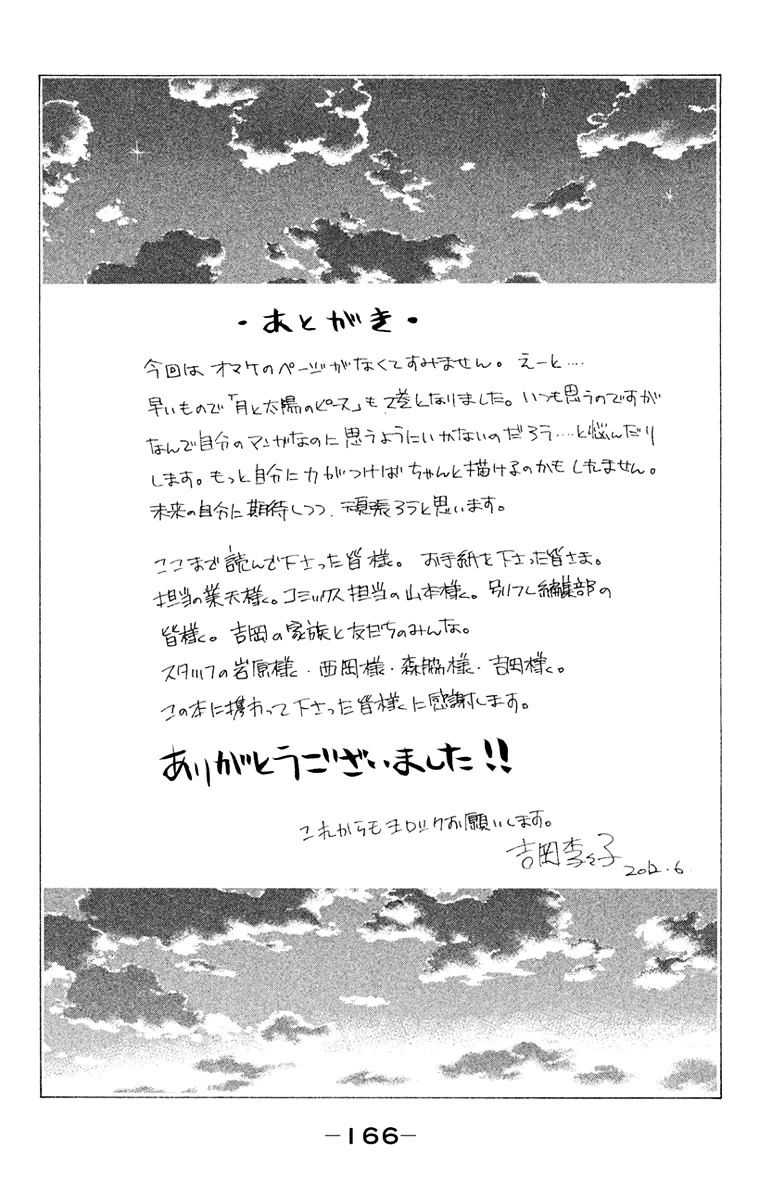 ・あとがき・
今回は オマケのページがなくてすみません。 えーと‥‥
早いもので「月と太陽のピース」も2巻となりました。いつも思うのですが
なんで自分のマンガなのに思うようにいかないのだろう‥‥と悩んだり
します。もっと自分に力がつけばちゃんと描けるのかもしれません。
未来の自分に期待しつつ、頑張ろうと思います。
ここまで読んで下さった皆様。 お手紙を下さった皆さま。
担当の業天様。コミックス担当の山本様。別フレ編集部の
皆様。吉岡の家族と友だちのみんな。
スタッフの岩原様・西岡様・森脇様・吉岡様。
この本に携わって下さった皆様に感謝します。
ありがとうございました!!
これからもヨロシクお願いします。
吉岡李々子
2012.6
-166-